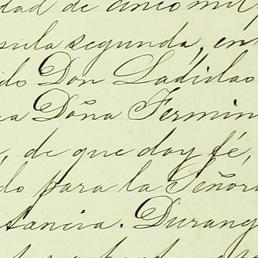 dad de cinco mil p
sula segunda, en
do Don Ladislao
ra Doña Fermin
, de que doy fé,
do para la Señora
tancia. Durang